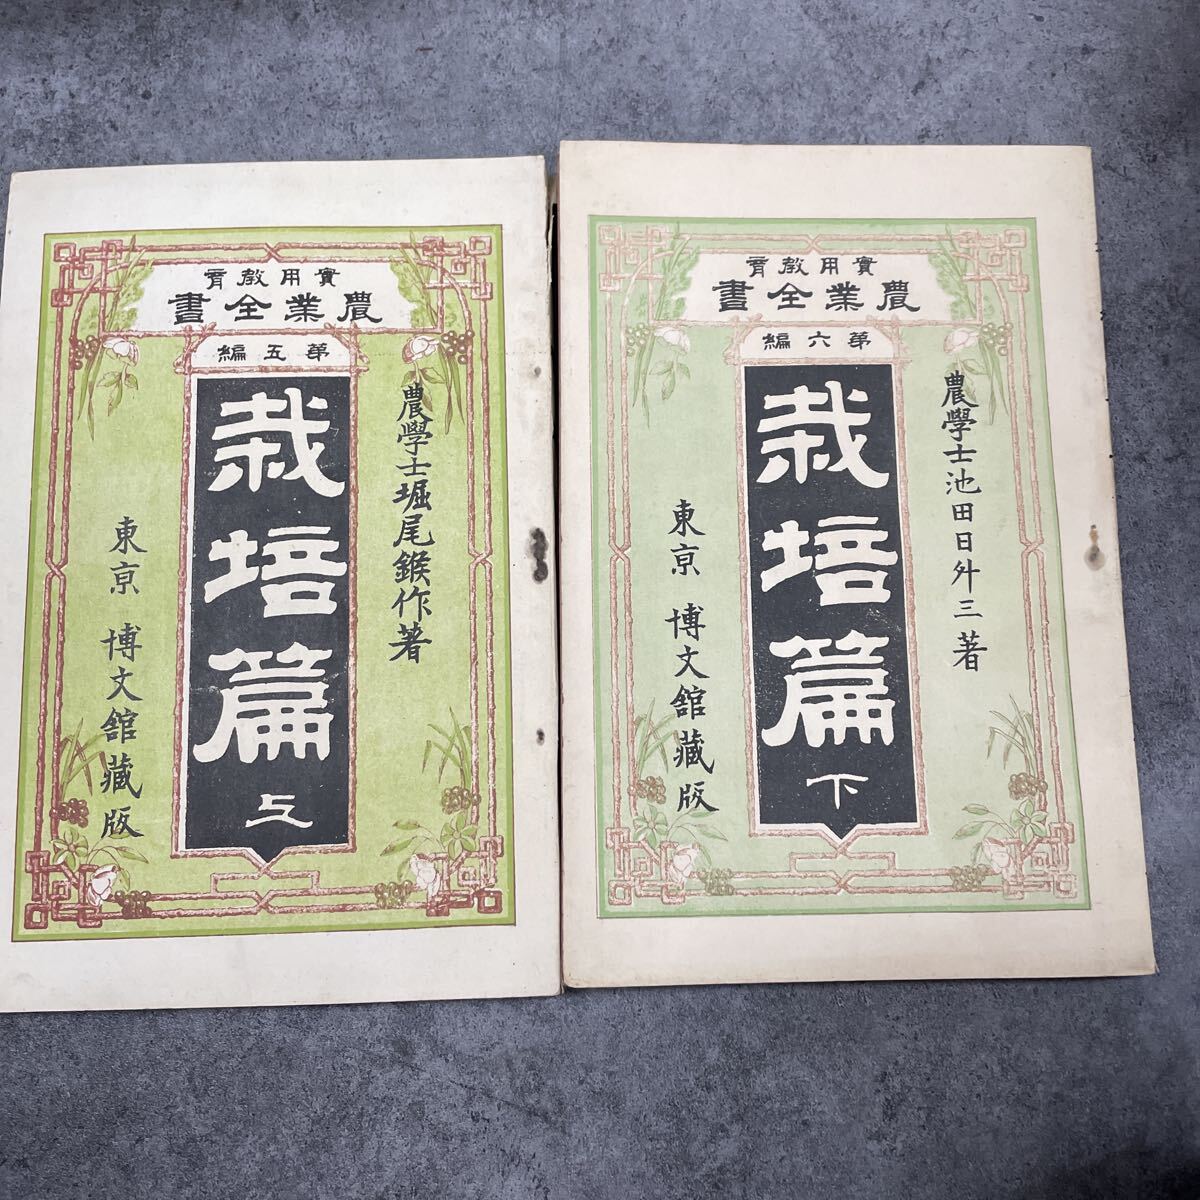 實用教育
農業全書
第五編
農學士堀尾鍭作著
栽培篇
上
東京 博文舘藏版
實用教育
農業全書
第六編
農學士池田日外三著
栽培篇
下
東京 博文舘藏版